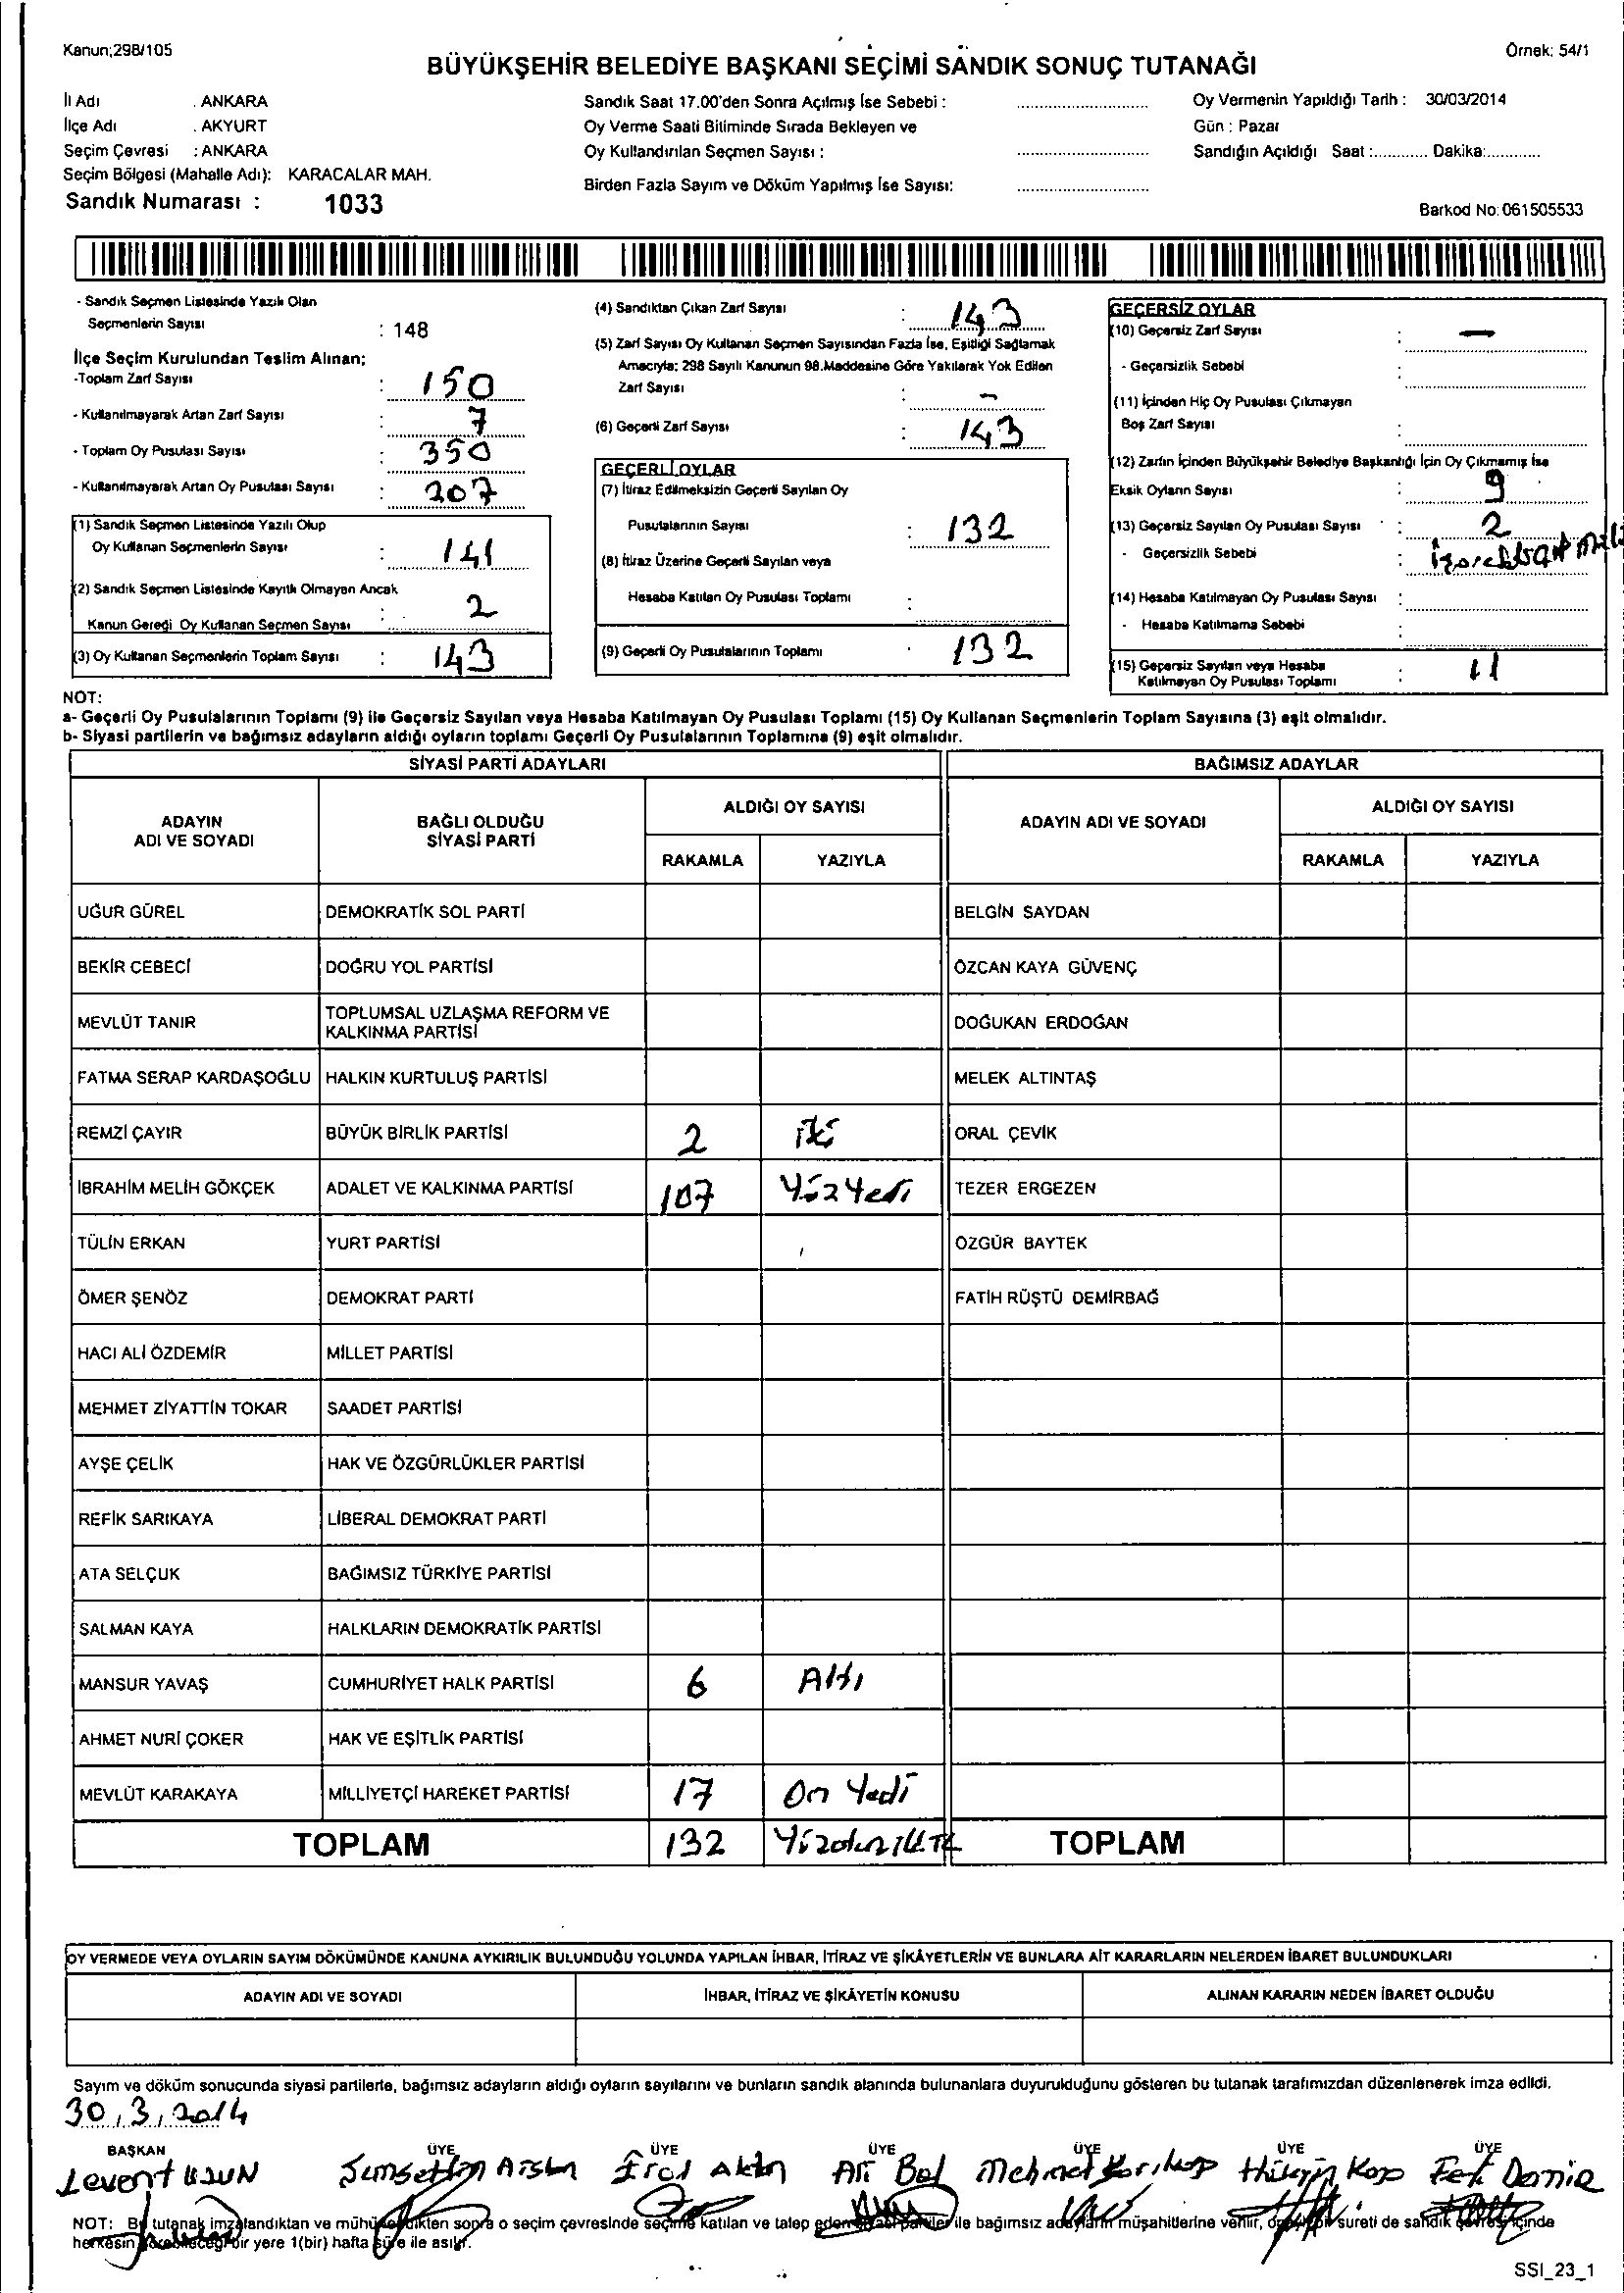 Kanun;298/105
Örnek: 54/1
BÜYÜKŞEHİR BELEDİYE BAŞKANI SEÇİMİ SANDIK SONUÇ TUTANAĞI
İl Adı : ANKARA
İlçe Adı : AKYURT
Seçim Çevresi : ANKARA
Seçim Bölgesi (Mahalle Adı): KARACALAR MAH.
Sandık Numarası : 1033
Sandık Saat 17.00'den Sonra Açılmış İse Sebebi :
Oy Verme Saati Bitiminde Sırada Bekleyen ve
Oy Kullandırılan Seçmen Sayısı :
Birden Fazla Sayım ve Döküm Yapılmış İse Sayısı:
Oy Vermenin Yapıldığı Tarih : 30/03/2014
Gün : Pazar
Sandığın Açıldığı Saat :............ Dakika:............
Barkod No: 061505533
- Sandık Seçmen Listesinde Yazılı Olan
Seçmenlerin Sayısı : 148
İlçe Seçim Kurulundan Teslim Alınan;
-Toplam Zarf Sayısı : 150
- Kullanılmayarak Artan Zarf Sayısı : 7
- Toplam Oy Pusulası Sayısı : 350
- Kullanılmayarak Artan Oy Pusulası Sayısı : 207
(1) Sandık Seçmen Listesinde Yazılı Olup
Oy Kullanan Seçmenlerin Sayısı : 141
(2) Sandık Seçmen Listesinde Kayıtlı Olmayan Ancak
Kanun Gereği Oy Kullanan Seçmen Sayısı : 2
(3) Oy Kullanan Seçmenlerin Toplam Sayısı : 143
(4) Sandıktan Çıkan Zarf Sayısı : 143
(5) Zarf Sayısı Oy Kullanan Seçmen Sayısından Fazla İse, Eşitliği Sağlamak
Amacıyla; 298 Sayılı Kanunun 98.Maddesine Göre Yakılarak Yok Edilen
Zarf Sayısı : -
(6) Geçerli Zarf Sayısı : 143
GEÇERLİ OYLAR
(7) İtiraz Edilmeksizin Geçerli Sayılan Oy
Pusulalarının Sayısı : 132
(8) İtiraz Üzerine Geçerli Sayılan veya
Hesaba Katılan Oy Pusulası Toplamı :
(9) Geçerli Oy Pusulalarının Toplamı : 132
GEÇERSİZ OYLAR
(10) Geçersiz Zarf Sayısı : -
- Geçersizlik Sebebi :
(11) İçinden Hiç Oy Pusulası Çıkmayan
Boş Zarf Sayısı :
(12) Zarfın İçinden Büyükşehir Belediye Başkanlığı İçin Oy Çıkmamış İse
Eksik Oyların Sayısı : 9
(13) Geçersiz Sayılan Oy Pusulası Sayısı : 2
- Geçersizlik Sebebi :
(14) Hesaba Katılmayan Oy Pusulası Sayısı :
- Hesaba Katılmama Sebebi :
(15) Geçersiz Sayılan veya Hesaba
Katılmayan Oy Pusulası Toplamı : 11
NOT:
a- Geçerli Oy Pusulalarının Toplamı (9) ile Geçersiz Sayılan veya Hesaba Katılmayan Oy Pusulası Toplamı (15) Oy Kullanan Seçmenlerin Toplam Sayısına (3) eşit olmalıdır.
b- Siyasi partilerin ve bağımsız adayların aldığı oyların toplamı Geçerli Oy Pusulalarının Toplamına (9) eşit olmalıdır.
SİYASİ PARTİ ADAYLARI BAĞIMSIZ ADAYLAR
ADAYIN ADI VE SOYADI
BAĞLI OLDUĞU SİYASİ PARTİ
ALDIĞI OY SAYISI
RAKAMLA YAZIYLA
ADAYIN ADI VE SOYADI
ALDIĞI OY SAYISI
RAKAMLA YAZIYLA
UĞUR GÜREL DEMOKRATİK SOL PARTİ BELGİN SAYDAN
BEKİR CEBECİ DOĞRU YOL PARTİSİ ÖZCAN KAYA GÜVENÇ
MEVLÜT TANIR TOPLUMSAL UZLAŞMA REFORM VE KALKINMA PARTİSİ DOĞUKAN ERDOĞAN
FATMA SERAP KARDAŞOĞLU HALKIN KURTULUŞ PARTİSİ MELEK ALTINTAŞ
REMZİ ÇAYIR BÜYÜK BİRLİK PARTİSİ 2 iki ORAL ÇEVİK
İBRAHİM MELİH GÖKÇEK ADALET VE KALKINMA PARTİSİ 107 Yüz Yedi TEZER ERGEZEN
TÜLİN ERKAN YURT PARTİSİ ÖZGÜR BAYTEK
ÖMER ŞENÖZ DEMOKRAT PARTİ FATİH RÜŞTÜ DEMİRBAĞ
HACI ALİ ÖZDEMİR MİLLET PARTİSİ
MEHMET ZİYATTİN TOKAR SAADET PARTİSİ
AYŞE ÇELİK HAK VE ÖZGÜRLÜKLER PARTİSİ
REFİK SARIKAYA LİBERAL DEMOKRAT PARTİ
ATA SELÇUK BAĞIMSIZ TÜRKİYE PARTİSİ
SALMAN KAYA HALKLARIN DEMOKRATİK PARTİSİ
MANSUR YAVAŞ CUMHURİYET HALK PARTİSİ 6 Altı
AHMET NURİ ÇOKER HAK VE EŞİTLİK PARTİSİ
MEVLÜT KARAKAYA MİLLİYETÇİ HAREKET PARTİSİ 17 On Yedi
TOPLAM 132 TOPLAM
OY VERMEDE VEYA OYLARIN SAYIM DÖKÜMÜNDE KANUNA AYKIRILIK BULUNDUĞU YOLUNDA YAPILAN İHBAR, İTİRAZ VE ŞİKÂYETLERİN VE BUNLARA AİT KARARLARIN NELERDEN İBARET BULUNDUKLARI
ADAYIN ADI VE SOYADI İHBAR, İTİRAZ VE ŞİKÂYETİN KONUSU ALINAN KARARIN NEDEN İBARET OLDUĞU
Sayım ve döküm sonucunda siyasi partilerle, bağımsız adayların aldığı oyların sayılarını ve bunların sandık alanında bulunanlara duyurulduğunu gösteren bu tutanak tarafımızdan düzenlenerek imza edildi.
30.3.2014
BAŞKAN ÜYE ÜYE ÜYE ÜYE ÜYE ÜYE
Levent UZUN Arslan Erol Aktın Ali Bal Mehmet Hüseyin Kop
NOT: Bu tutanak imzalandıktan ve mühürlendikten sonra o seçim çevresinde seçime katılan ve talep eden siyasi partiler ile bağımsız adayların müşahitlerine verilir, onaylı bir sureti de sandık çevresi içinde
herkesin görebileceği bir yere 1(bir) hafta süre ile asılır.
SSI_23_1